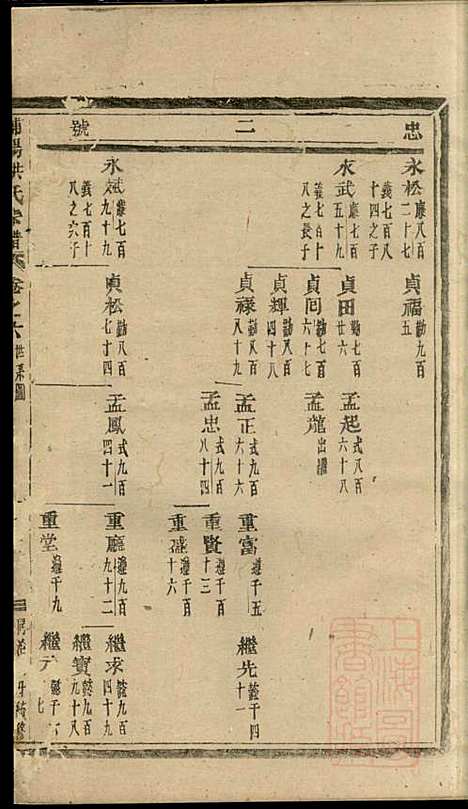 忠 二 號
永松 廉八百二十七
義七百八十四之子
永武 廉七百五十九
義七百十八之長子
永斌 廉七百九十九
義七百十八之六子
貞福 勤九百五
貞田 勤七百廿六
貞同 勤七百六十七
貞輝 勤八百四十八
貞祿 勤八百八十九
貞松 勤八百七十四
孟起 式八百六十八
孟龍 出繼
孟正 式九百六十六
孟忠 式九百八十四
孟鳳 式九百四十一
重富 遵千五
重賢 遵千百十三
重盛 遵千百十六
重廳 遵九百九十二
重堂 遵千九
繼先 懿千四十一
繼求 懿九百四十九
繼寶 懿九百九十八
繼 懿千 七
浦陽洪氏宗譜 卷之六 世系圖
上海圖書館藏